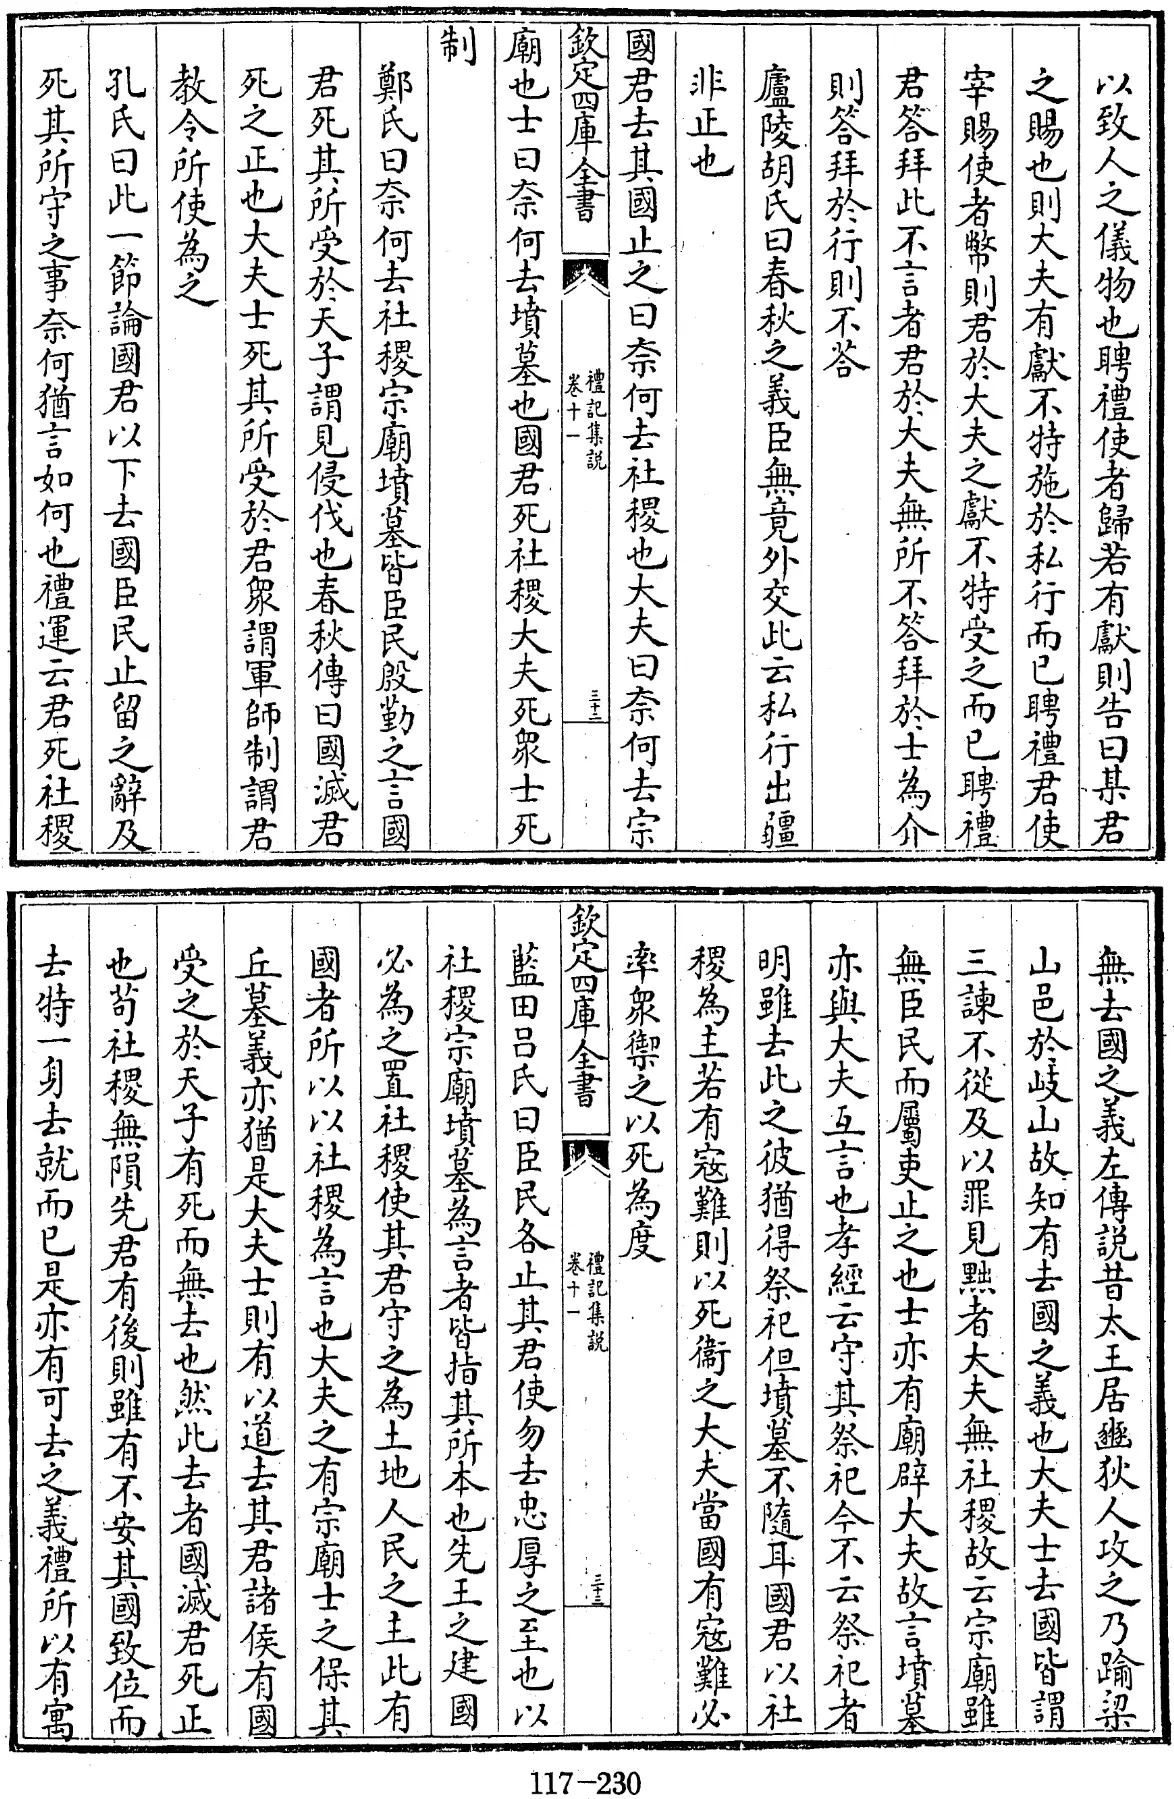 以致人之儀物也聘禮使者歸若有獻則告曰某君
之賜也則大夫有獻不特施於私行而已聘禮君使
宰賜使者幣則君於大夫之獻不特受之而已聘禮
君答拜此不言者君於大夫無所不答拜於士為介
則答拜於行則不答
廬陵胡氏曰春秋之義臣無竟外交此云私行出疆
非正也
國君去其國止之曰奈何去社稷也大夫曰奈何去宗
欽定四庫全書
禮記集説
卷十一
三十二
廟也士曰奈何去墳墓也國君死社稷大夫死衆士死
制
鄭氏曰奈何去社稷宗廟墳墓皆臣民殷勤之言國
君死其所受於天子謂見侵伐也春秋傳曰國滅君
死之正也大夫士死其所受於君衆謂軍師制謂君
教令所使為之
孔氏曰此一節論國君以下去國臣民止留之辭及
死其所守之事奈何猶言如何也禮運云君死社稷
無去國之義左傳説昔太王居豳狄人攻之乃踰梁
山邑於岐山故知有去國之義也大夫士去國皆謂
三諫不從及以罪見黜者大夫無社稷故云宗廟雖
無臣民而屬吏止之也士亦有廟辟大夫故言墳墓
亦與大夫互言也孝經云守其祭祀今不云祭祀者
明雖去此之彼猶得祭祀但墳墓不隨耳國君以社
稷為主若有寇難則以死衞之大夫當國有寇難必
率衆禦之以死為度
欽定四庫全書
禮記集説
卷十一
三十三
藍田呂氏曰臣民各止其君使勿去忠厚之至也以
社稷宗廟墳墓為言者皆指其所本也先王之建國
必為之置社稷使其君守之為土地人民之主此有
國者所以以社稷為言也大夫之有宗廟士之保其
丘墓義亦猶是大夫士則有以道去其君諸侯有國
受之於天子有死而無去也然此去者國滅君死正
也苟社稷無隕先君有後則雖有不安其國致位而
去特一身去就而已是亦有可去之義禮所以有寓
117-230